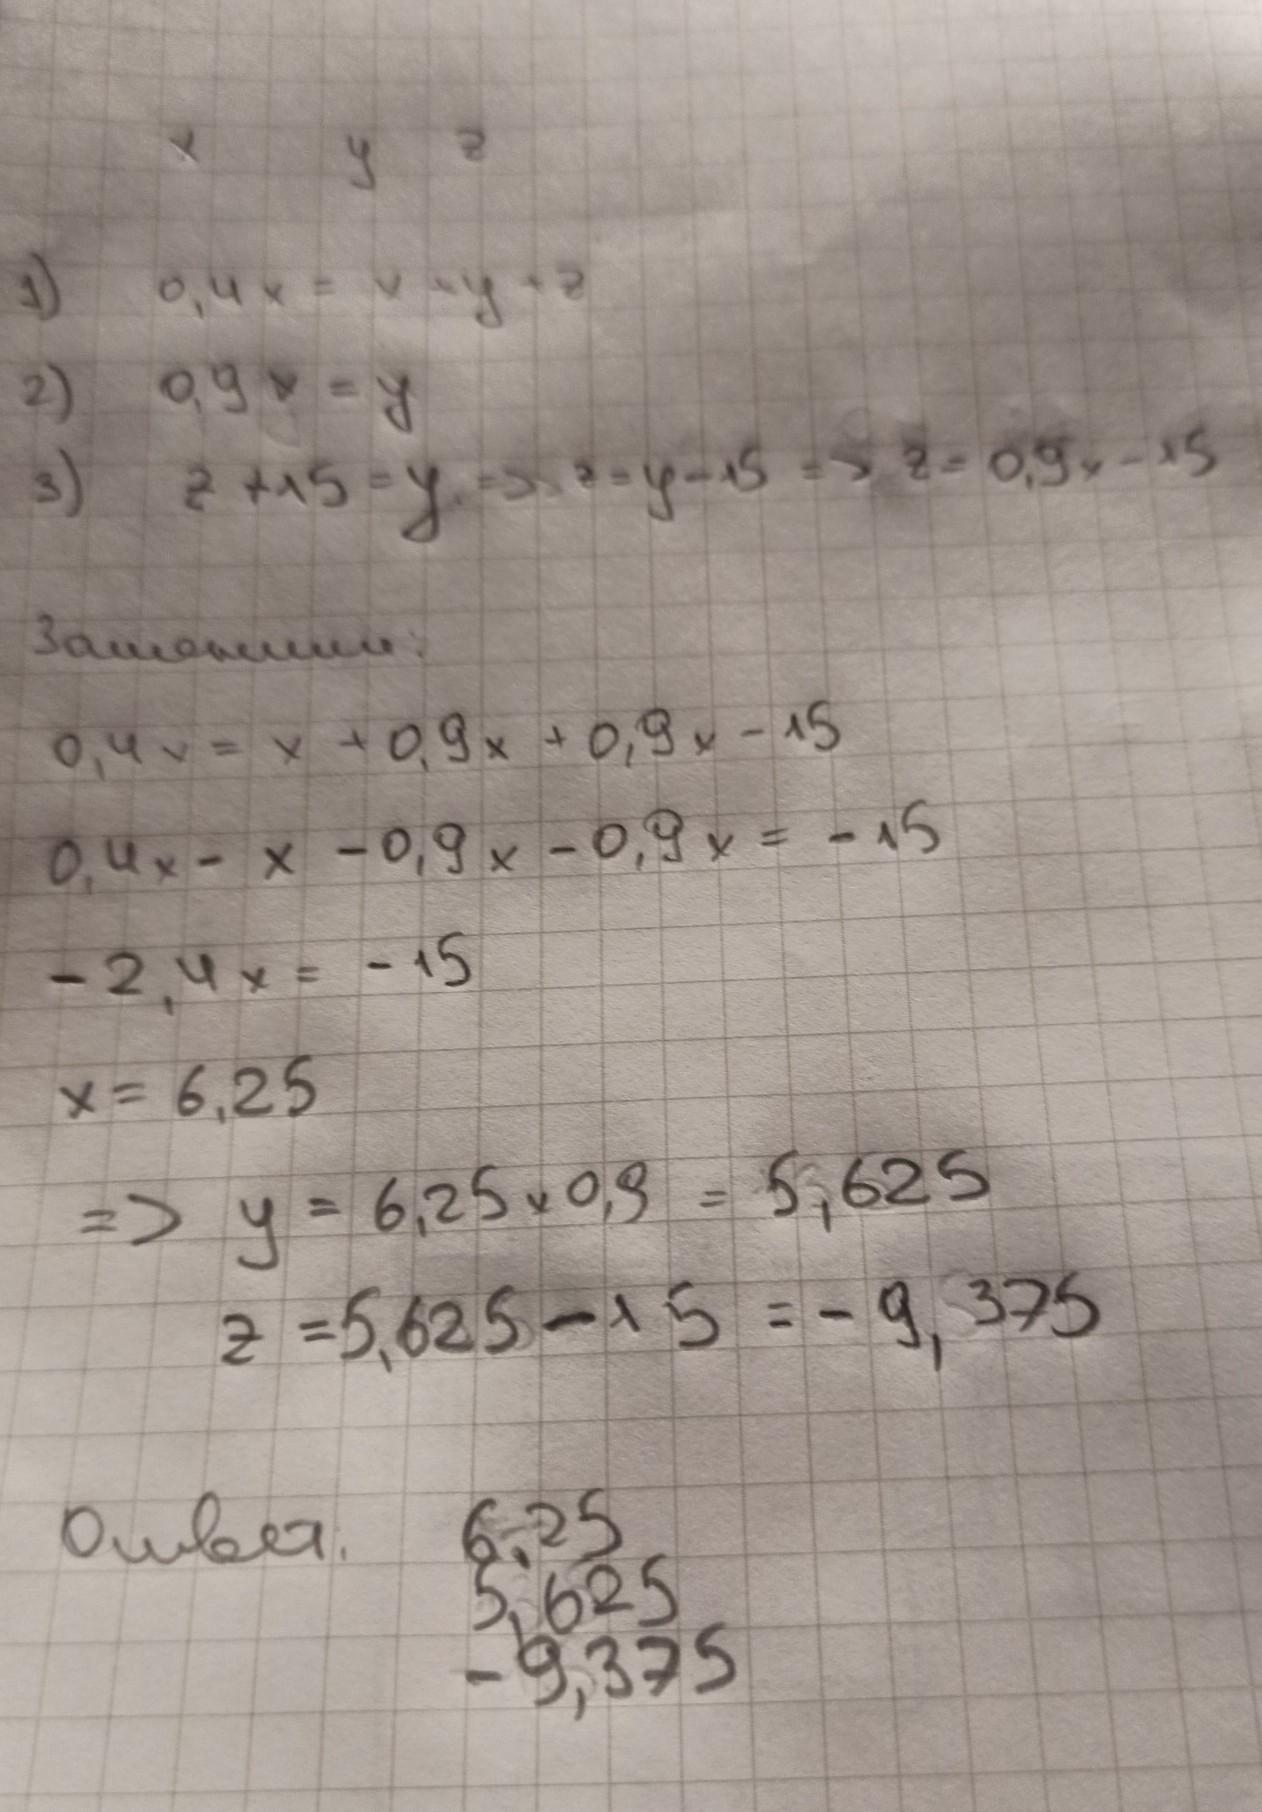 x y z
1) 0,4x = x + y + z
2) 0,9x = y
3) z + 15 = y => z = y - 15 => z = 0,9x - 15
0,4x = x + 0,9x + 0,9x - 15
0,4x - x - 0,9x - 0,9x = - 15
- 2,4x = - 15
x = 6,25
=> y = 6,25 x 0,9 = 5,625
z = 5,625 - 15 = - 9,375
Ответ. 6,25
5,625
- 9,375